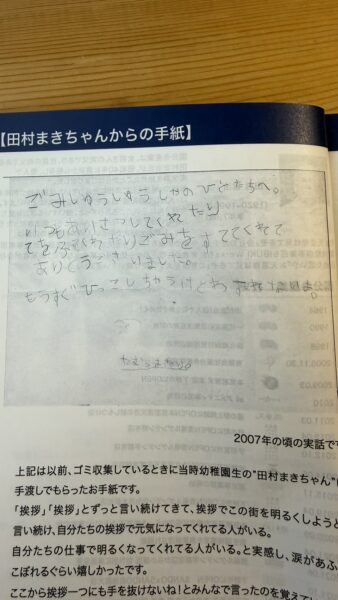 【田村まきちゃんからの手紙】
ごみしゅうしゅうしゃのひとたちへ。
いつもあいさつしてくれたり
てをふってくれたりごみをすててくれて
ありとうございました。
もうすぐひっこしちゃうけど
たむらまきより。
2007年の頃の実話です
上記は以前、ゴミ収集しているときに当時幼稚園生の"田村まきちゃん"
手渡しでもらったお手紙です。
「挨拶」「挨拶」とずっと言い続けてきて、挨拶でこの街を明るくしようと
言い続け、自分たちの挨拶で元気になってくれてる人がいる。
自分たちの仕事で明るくなってくれてる人がいる。と実感し、涙があふ
こぼれるぐらい嬉しかったです。
ここから挨拶一つにも手を抜けないね！とみんなで言ったのを覚えてい